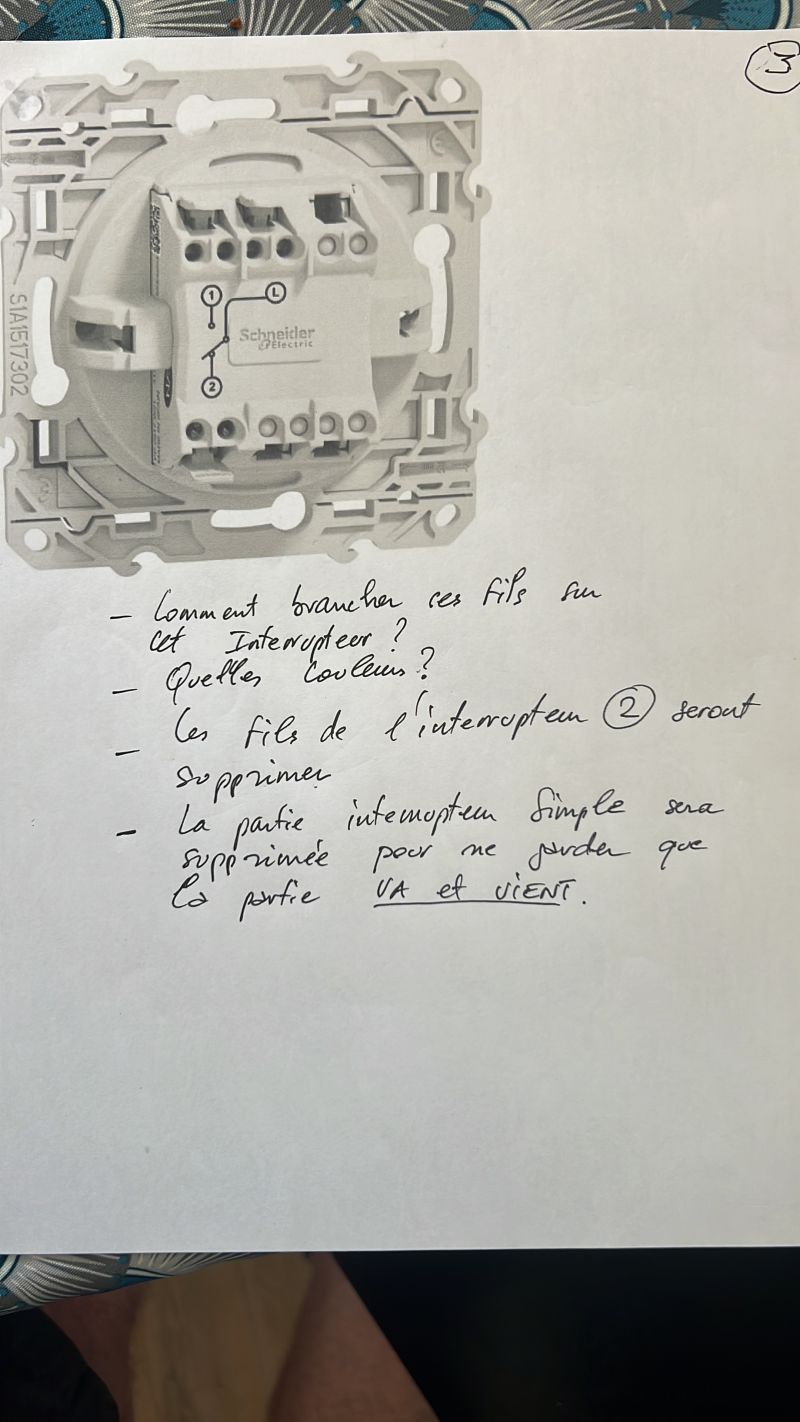 3
1
L
Schneider
Electric
2
S1A1517302
- Comment brancher ces fils sur
cet Interrupteur ?
- Quelles Couleurs ?
- Les fils de l'interrupteur 2 seront
supprimer
- La partie interrupteur Simple sera
supprimée pour ne garder que
la partie VA et ViENT.